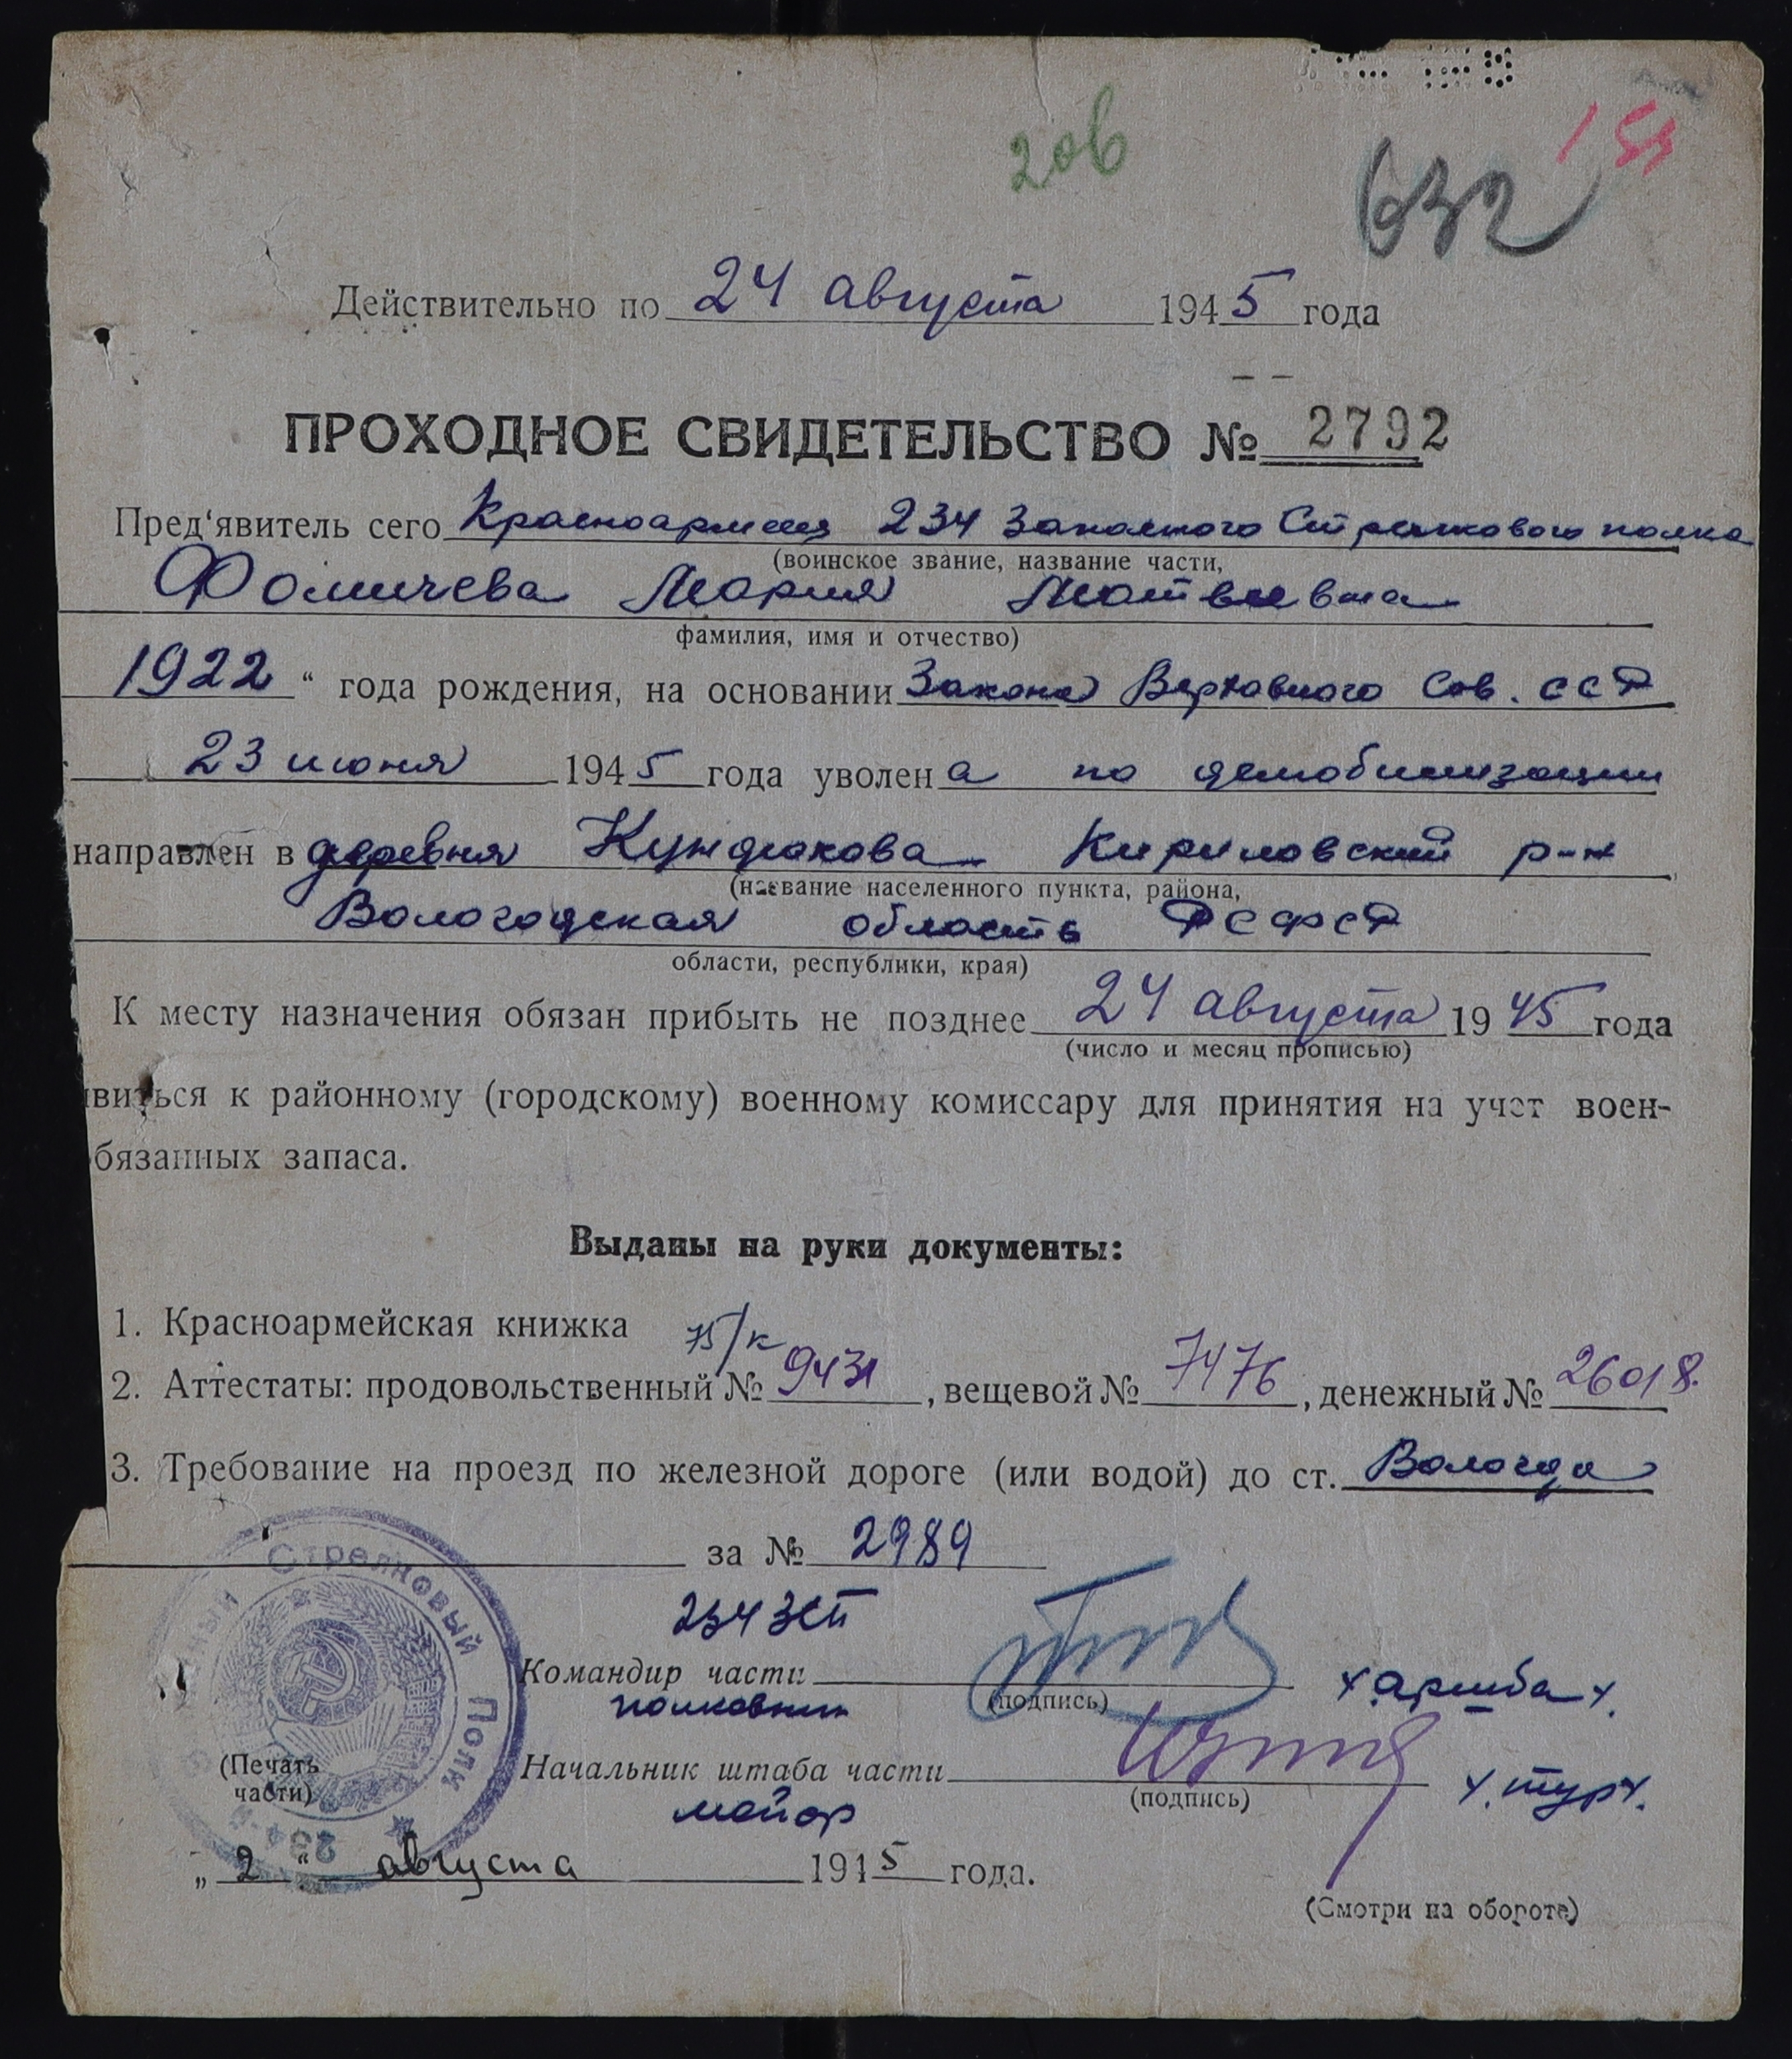 206
632
Действительно по 24 августа 1945 года
ПРОХОДНОЕ СВИДЕТЕЛЬСТВО № 2792
Пред‘явитель сего Красноармеец 234 Запасного Стрелкового полка
(воинское звание, название части,
Фомичева Мария Матвеевна
фамилия, имя и отчество)
1922 “ года рождения, на основании Закона Верховного Сов. ССР
23 июня 1945 года уволена по демобилизации
направлен в деревня Кундюкова Кириловский р-н
(название населенного пункта, района,
Вологодская область РСФСР
области, республики, края)
К месту назначения обязан прибыть не позднее 24 августа 1945 года
(число и месяц прописью)
явиться к районному (городскому) военному комиссару для принятия на учет воен-
бязанных запаса.
Выданы на руки документы:
1. Красноармейская книжка
2. Аттестаты: продовольственный № 9431, вещевой № 7476, денежный № 26018
3. Требование на проезд по железной дороге (или водой) до ст. Вологда
за № 2989
234 ЗСП
Командир части
(подпись)
полковник
Начальник штаба части
(подпись)
майор
(Печать
части)
Стрелковый Полк
„ 2 “ августа 1945 года.
(Смотри на обороте)